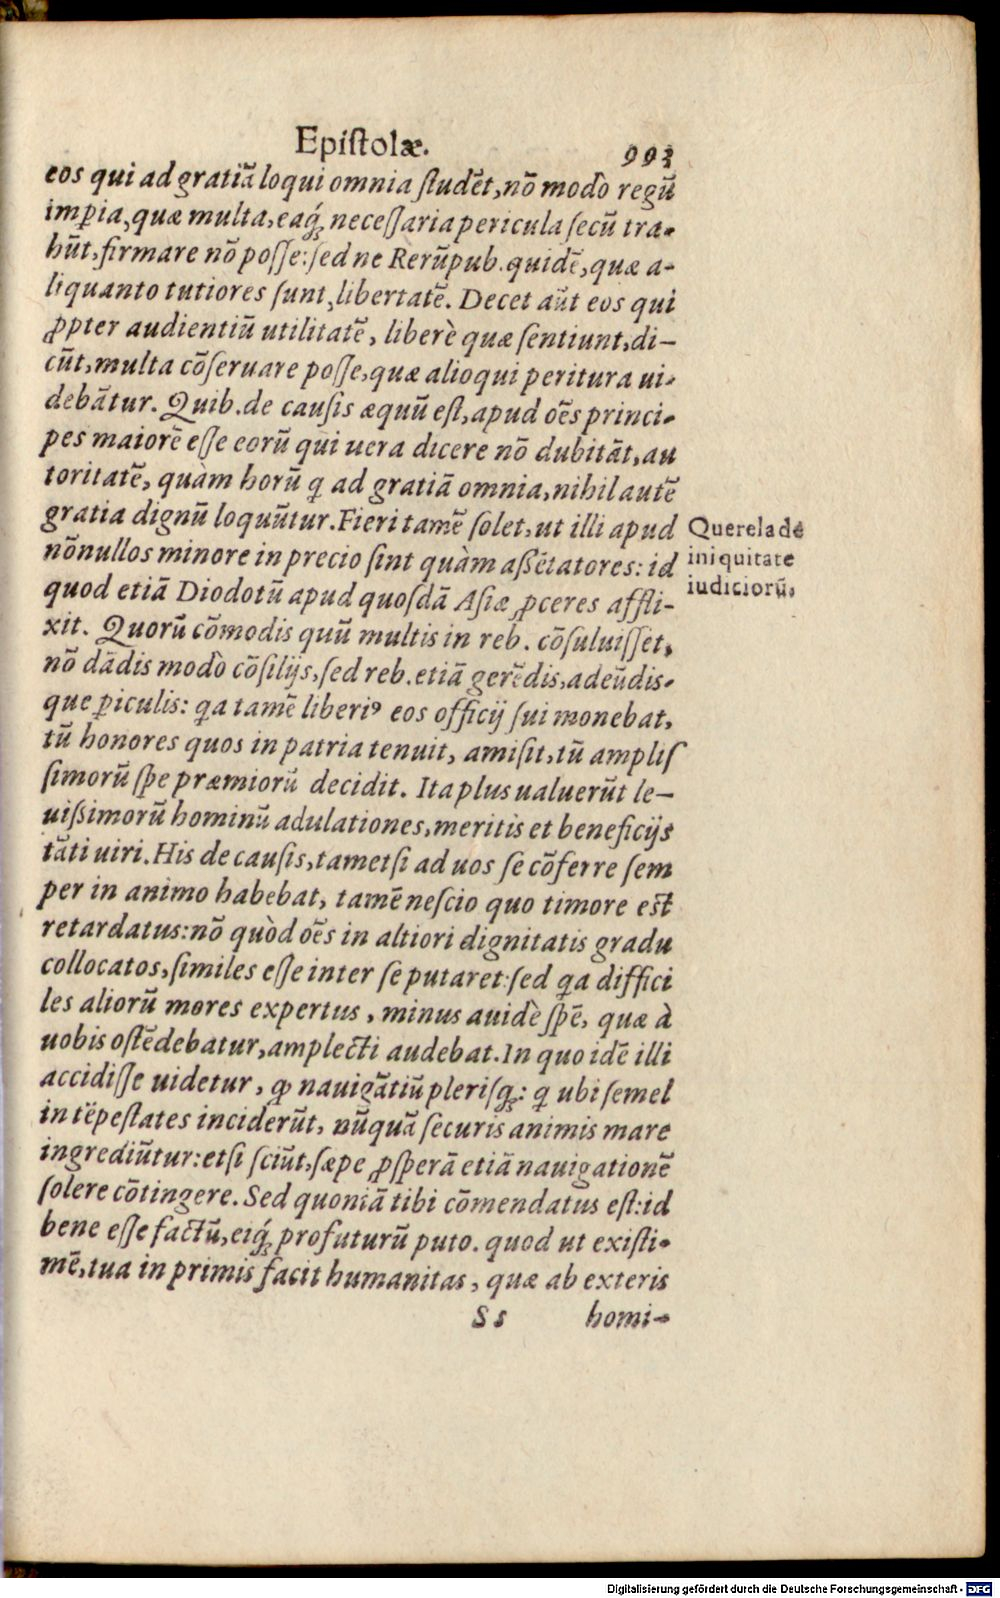 Epistolæ.
993
eos qui ad gratiā loqui omnia ſtudēt, nō modò regū
imꝑia, quæ multa, eaq́ꝫ neceſſaria pericula ſecū tra-
hūt, firmare nō poſſe: ſed ne Rerūpub. quidē, quæ a-
liquanto tutiores ſunt, libertatē. Decet aūt eos qui
ꝓpter audientiū utilitatē, liberè quæ ſentiunt, di-
cūt, multa cōſeruare poſſe, quæ alioqui peritura ui-
debātur. Quib. de cauſis æquū eſt, apud oēs princi-
pes maiorē eſſe eorū qui uera dicere nō dubitāt, au
toritatē, quàm horū ꝗ ad gratiā omnia, nihil autē
gratia dignū loquūtur. Fieri tamē ſolet, ut illi apud
nōnullos minore in precio ſint quàm aſſētatores: id
quod etiā Diodotū apud quoſdā Aſiæ ꝓceres affli-
xit. Quorū cōmodis quū multis in reb. cōſuluiſſet,
nō dādis modò cōſilijs, ſed reb. etiā gerēdis, adeūdis-
que ꝑiculis: ꝗa tamē liberiꝰ eos officij ſui monebat,
tū honores quos in patria tenuit, amiſit, tū ampliſ
ſimorū ſpe præmiorū decidit. Ita plus ualuerūt le-
uiſſimorū hominū adulationes, meritis et beneficijs
tāti uiri. His de cauſis, tametſi ad uos ſe cōferre ſem
per in animo habebat, tamē neſcio quo timore eſt
retardatus: nō quòd oēs in altiori dignitatis gradu
collocatos, ſimiles eſſe inter ſe putaret: ſed ꝗa diffici
les aliorū mores expertus, minus auidè ſpē, quæ à
uobis oſtēdebatur, amplecti audebat. In quo idē illi
accidiſſe uidetur, ꝙ nauigātiū pleriſq́ꝫ: ꝗ ubi ſemel
in tēpeſtates inciderūt, nūquā ſecuris animis mare
ingrediūtur: etſi ſciūt, ſæpe ꝓſperā etiā nauigationē
ſolere cōtingere. Sed quoniā tibi cōmendatus eſt: id
bene eſſe factū, eiq́ꝫ profuturū puto. quod ut exiſti-
mē, tua in primis facit humanitas, quæ ab exteris
Ss homi-
Querela de
iniquitate
iudiciorū.
Digitalisierung gefördert durch die Deutsche Forschungsgemeinschaft - DFG